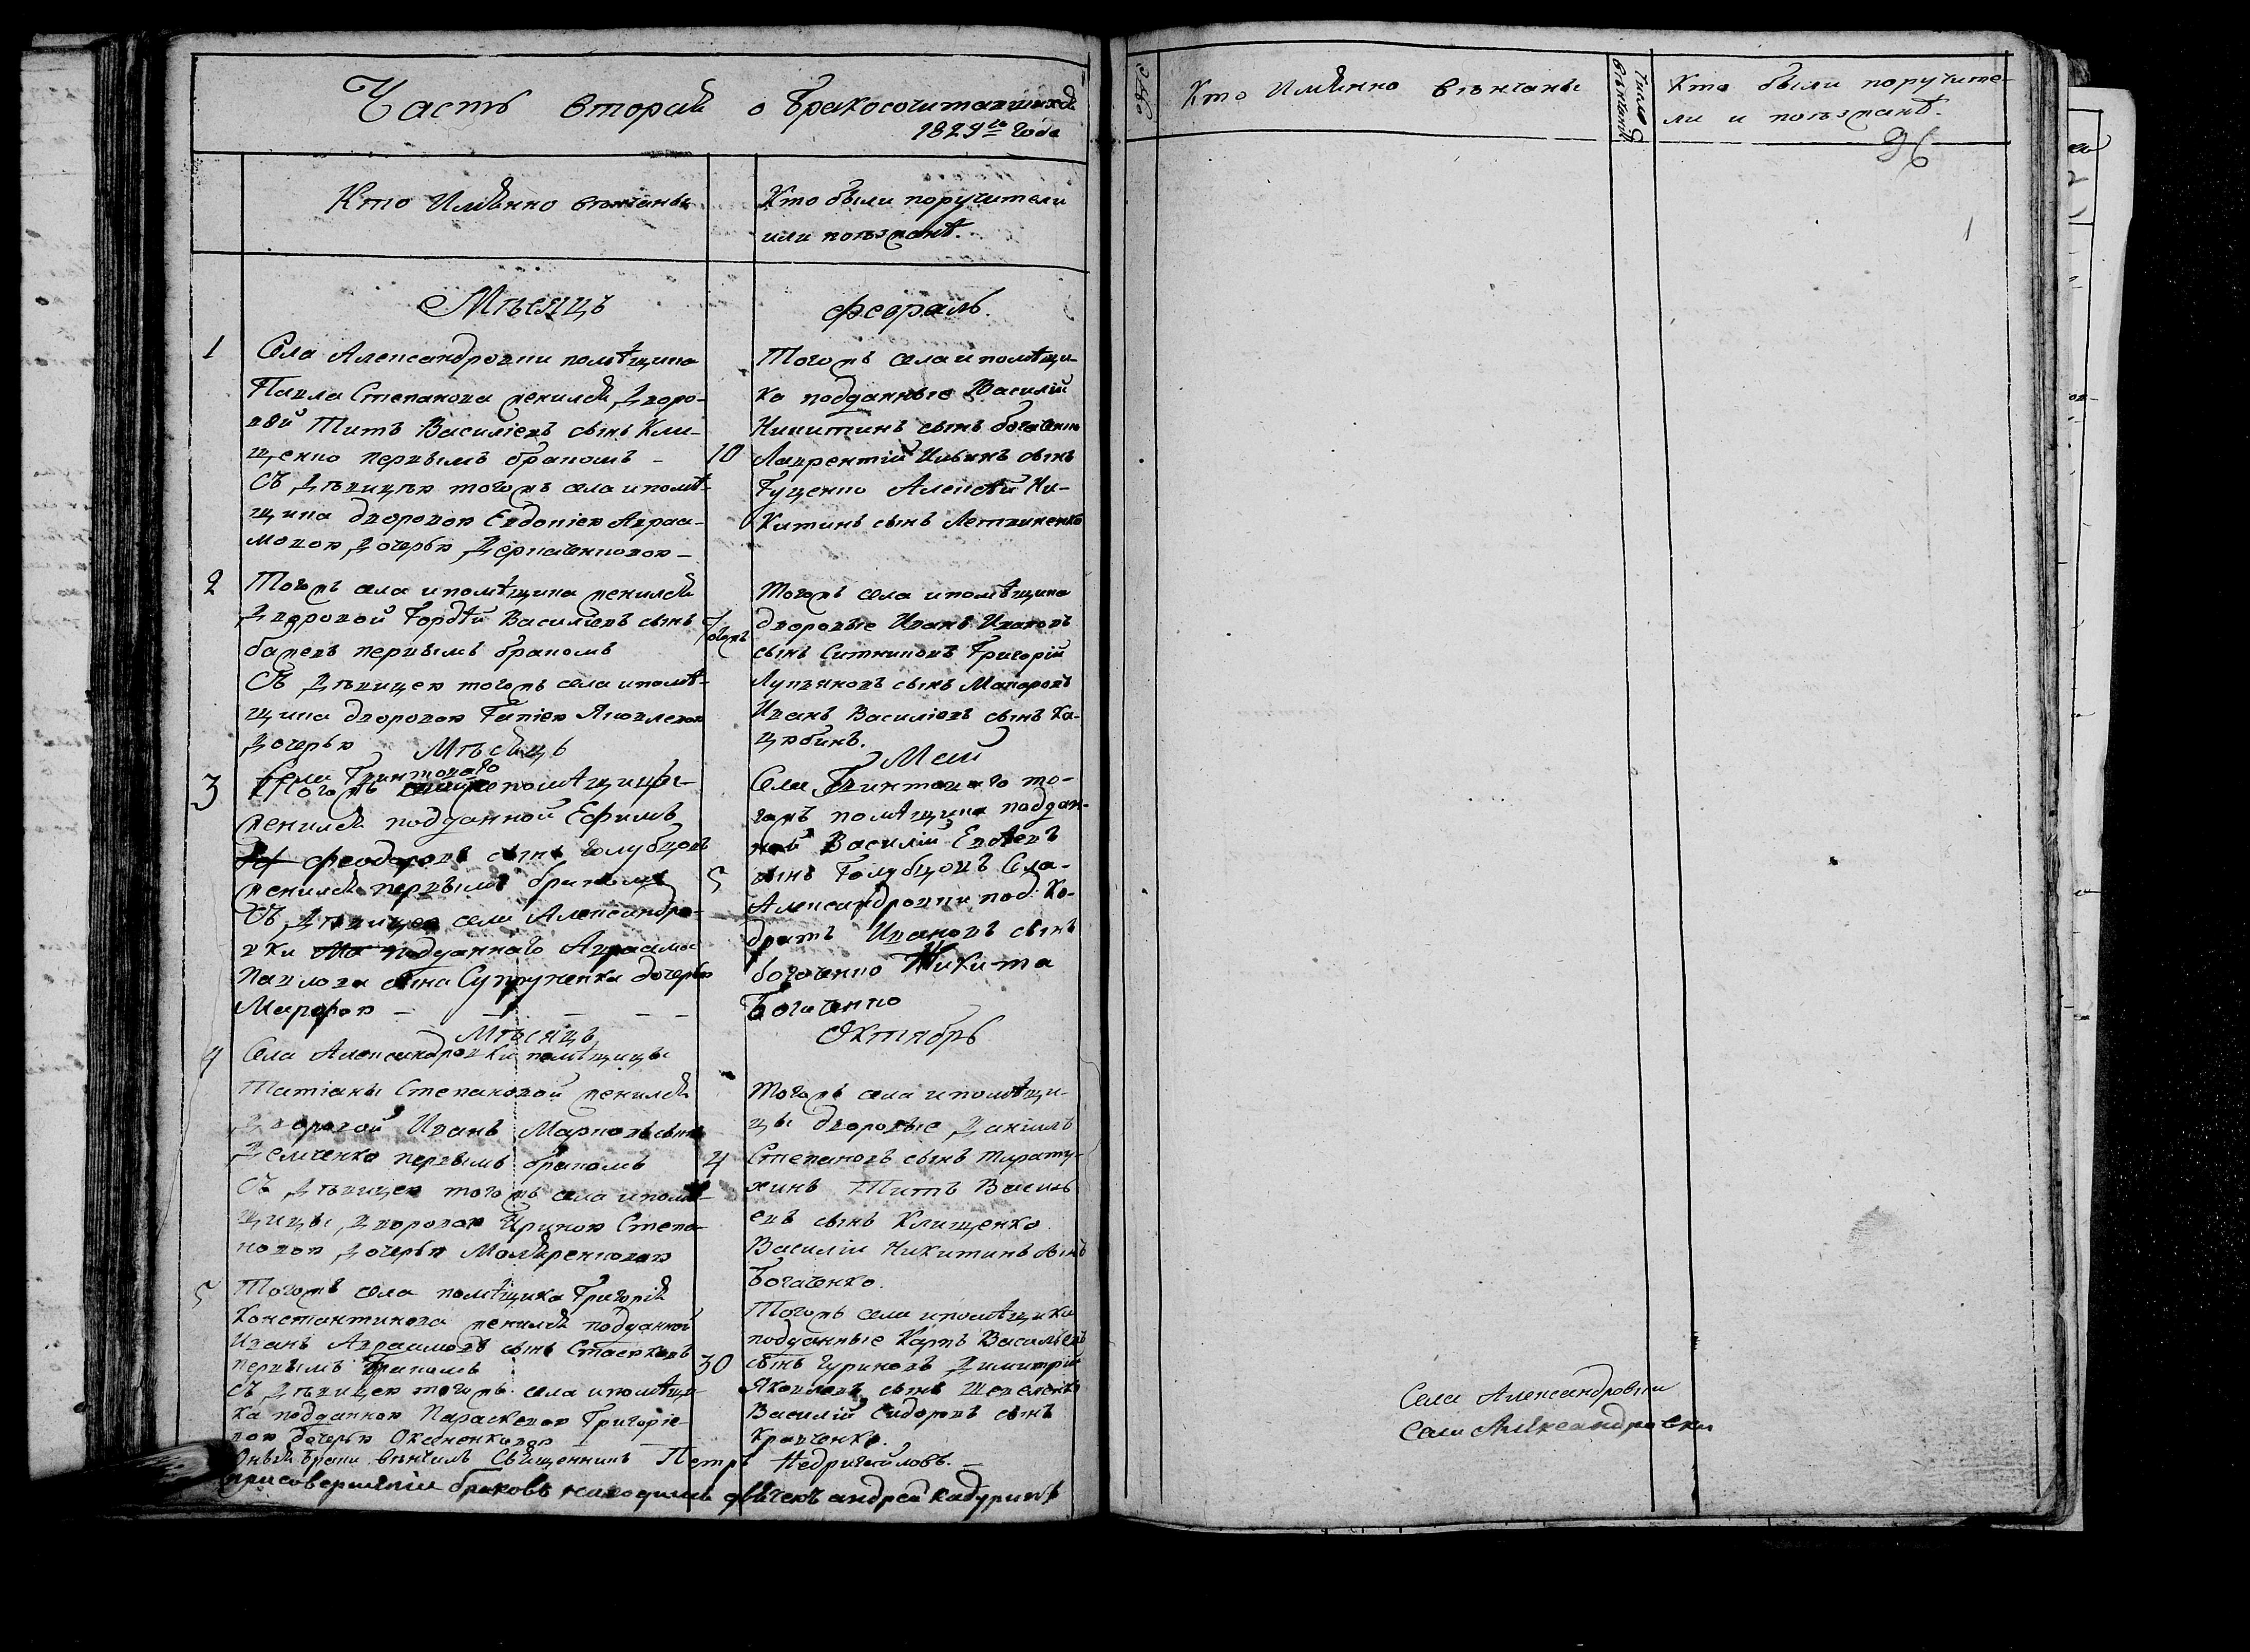 Часть вторая о бракосочитавшихся
1829го года
Кто Имянно венчаны
Кто были поручители
или поезжанѣ.
Мѣсяцъ
Февраль.
1
Села Александровки помѣщика
Павла Степанова женился Дворо-
вой Титъ Василіевъ сынъ Кли-
щенко первымъ бракомъ –
Съ Дѣвицею тогожъ села и помѣ-
щика дворовою Евдокіею Авраа-
мовою Дочерью Деркаченковою –
10
Тогожъ села и помѣщи-
ка подданные Василій
Никитинъ сынъ богаченко
Лаврентій Ильинъ сынъ
Гуценко Алексѣй Ни-
китинъ сынъ Летвиненко
2
Тогожъ села и помѣщика женился
Дворовой Гордѣй Василиевъ сынъ
первымъ бракомъ
Съ Дѣвицею тогожъ села и помѣ-
щика дворовою Яковлевою
Дочерью
тогожъ
Тогожъ села и помѣщика
дворовые Иванъ Ивановъ
сынъ Ситниковъ Григорій
Лукьяновъ сынъ Макаровъ
Иванъ Василіевъ сынъ Ка-
цюбинъ.
Мѣсяцъ
Май
3
Села Гвинтоваго
Тогожъ помѣщицы
женился подданной Ефимъ
Феодоровъ сынъ Голубцовъ
женился первымъ бракомъ
Съ Дѣвицею села Александро-
вки подданнаго Авраама
Павлова сына Супруненка дочерью
Марфою –
5
Села Гвинтоваго то-
гожъ помѣщика поддан-
ной Василій
сынъ Голубцовъ Села
Александровки под: Ко-
дратъ Ивановъ сынъ
богаченко Никита
Богаченко
Мѣсяцъ
Октябрь
4
Села Александровки помѣщицы
Татіаны Степановой женился
Дворовой Иванъ Марковъ сынъ
Демченко первымъ бракомъ
Съ Дѣвицею тогожъ села и помѣ-
щицы Дворовою Ириною Степа-
новою Дочерью
4
Тогожъ села и помѣщи-
цы дворовые Даніилъ
Степановъ сынъ
Титъ Василь
евъ сынъ Клищенко
Василій Никитинъ сынъ
Богаченко.
5
Тогожъ села помѣщика Григорія
Константинова женился подданной
Иванъ Авраамовъ сынъ
первымъ бракомъ
Съ Дѣвицею тогожъ села и помѣщи-
ка подданною Параскевою Григорие-
вою дочерью Оксененковою
30
Тогожъ села и помѣщика
подданные Карпъ Васильевъ
сынъ Чуриковъ Димитрій
Яковлевъ сынъ Шевелевъ
Василій Сидоровъ сынъ
Кравченко.
Оные браки вѣнчалъ Священникъ Петръ Недригайловъ. –
при совершеніи браковъ находился дьячекъ андрей кадуринъ
Кто Имянно вѣнчаны
Число
вѣнчанія
Кто были поручите-
ли и поезжанѣ.
96
Села Александровки
Села Александровки